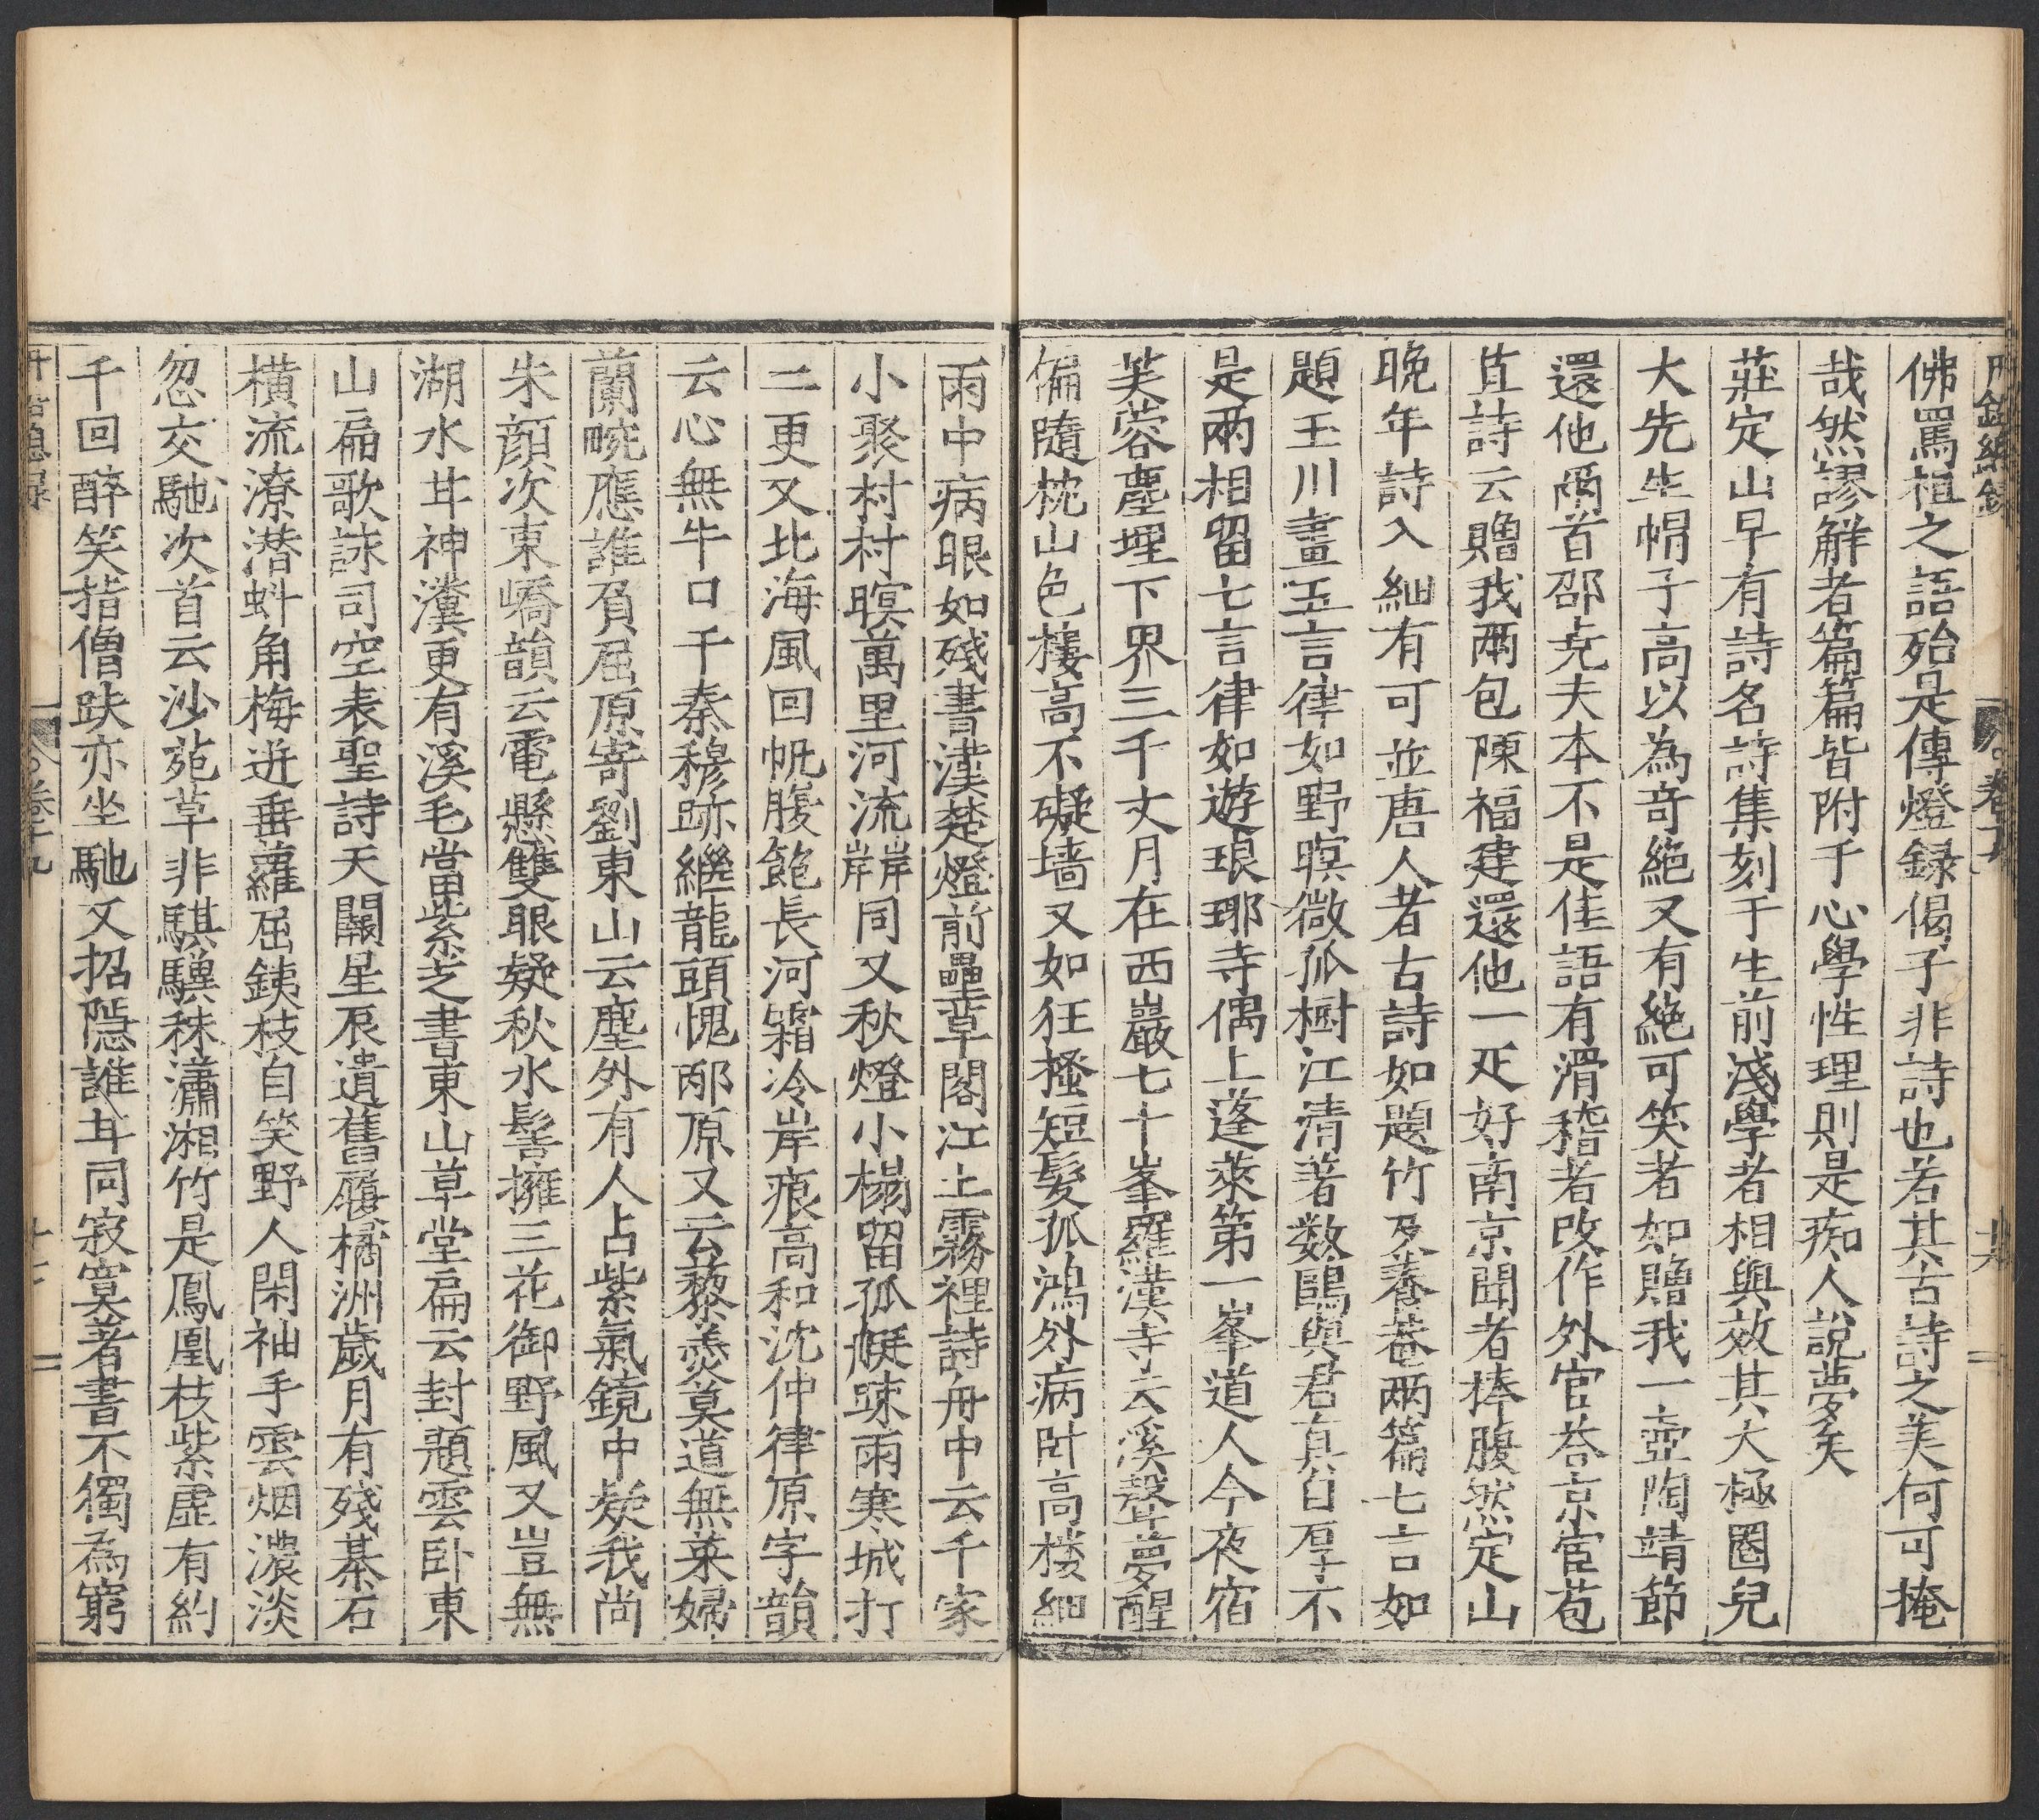 丹鉛總録 卷十九 十六
佛罵祖之語殆是傳燈録偈子非詩也若其古詩之美何可掩
哉然謬解者篇篇皆附于心學性理則是痴人說夢矣
莊定山早有詩名詩集刻于生前淺學者相與效其太極圈兒
大先生帽子高以為奇絶又有絶可笑者如贈我一壺陶靖節
還他兩首邵尭夫本不是佳語有滑稽者改作外官荅京宦苞
苴詩云贈我兩包陳福建還他一疋好南京聞者捧腹然定山
晚年詩入細有可並唐人者古詩如題竹及春菴两篇七言如
題玉川畫五言律如野暝微孤樹江清著数鷗與君真自厚不
是兩相留七言律如遊琅琊寺偶上蓬萊第一峯道人今夜宿
芙蓉塵埋下界三千丈月在西巖七十峯羅漢寺云溪聲夢醒
偏隨枕山色樓高不礙墙又如狂搔短髮孤鴻外病卧高楼細
雨中病眼如殘書漢楚燈前壘草閣江上霧裡詩舟中云千家
小聚村村暝萬里河流岸岸同又秋燈小榻留孤艇踈雨寒城打
二更又北海風回帆腹飽長河霜冷岸痕高和沈仲律原字韻
云心無牛口干秦穆跡繼龍頭愧邴原又云藜羹莫道無萊婦
蘭畹應誰負屈原寄劉東山云塵外有人占紫氣鏡中疑我尚
朱顔次東嶠韻云電懸雙眼疑秋水髻擁三花御野風又豈無
湖水甘神瀵更有溪毛當紫芝書東山草堂扁云封題雲卧東
山扁歌詠司空表聖詩天闕星辰遺舊履橘洲歲月有殘棊石
横流潦潛蚪角梅迸垂蘿屈鐵枝自笑野人閑袖手雲烟濃淡
忽交馳次首云沙苑草非騏驥秣瀟湘竹是鳳凰枝紫虛有約
千回醉笑指僧趺亦坐馳又招隠誰甘同寂寞著書不獨為窮
卷十九 十七